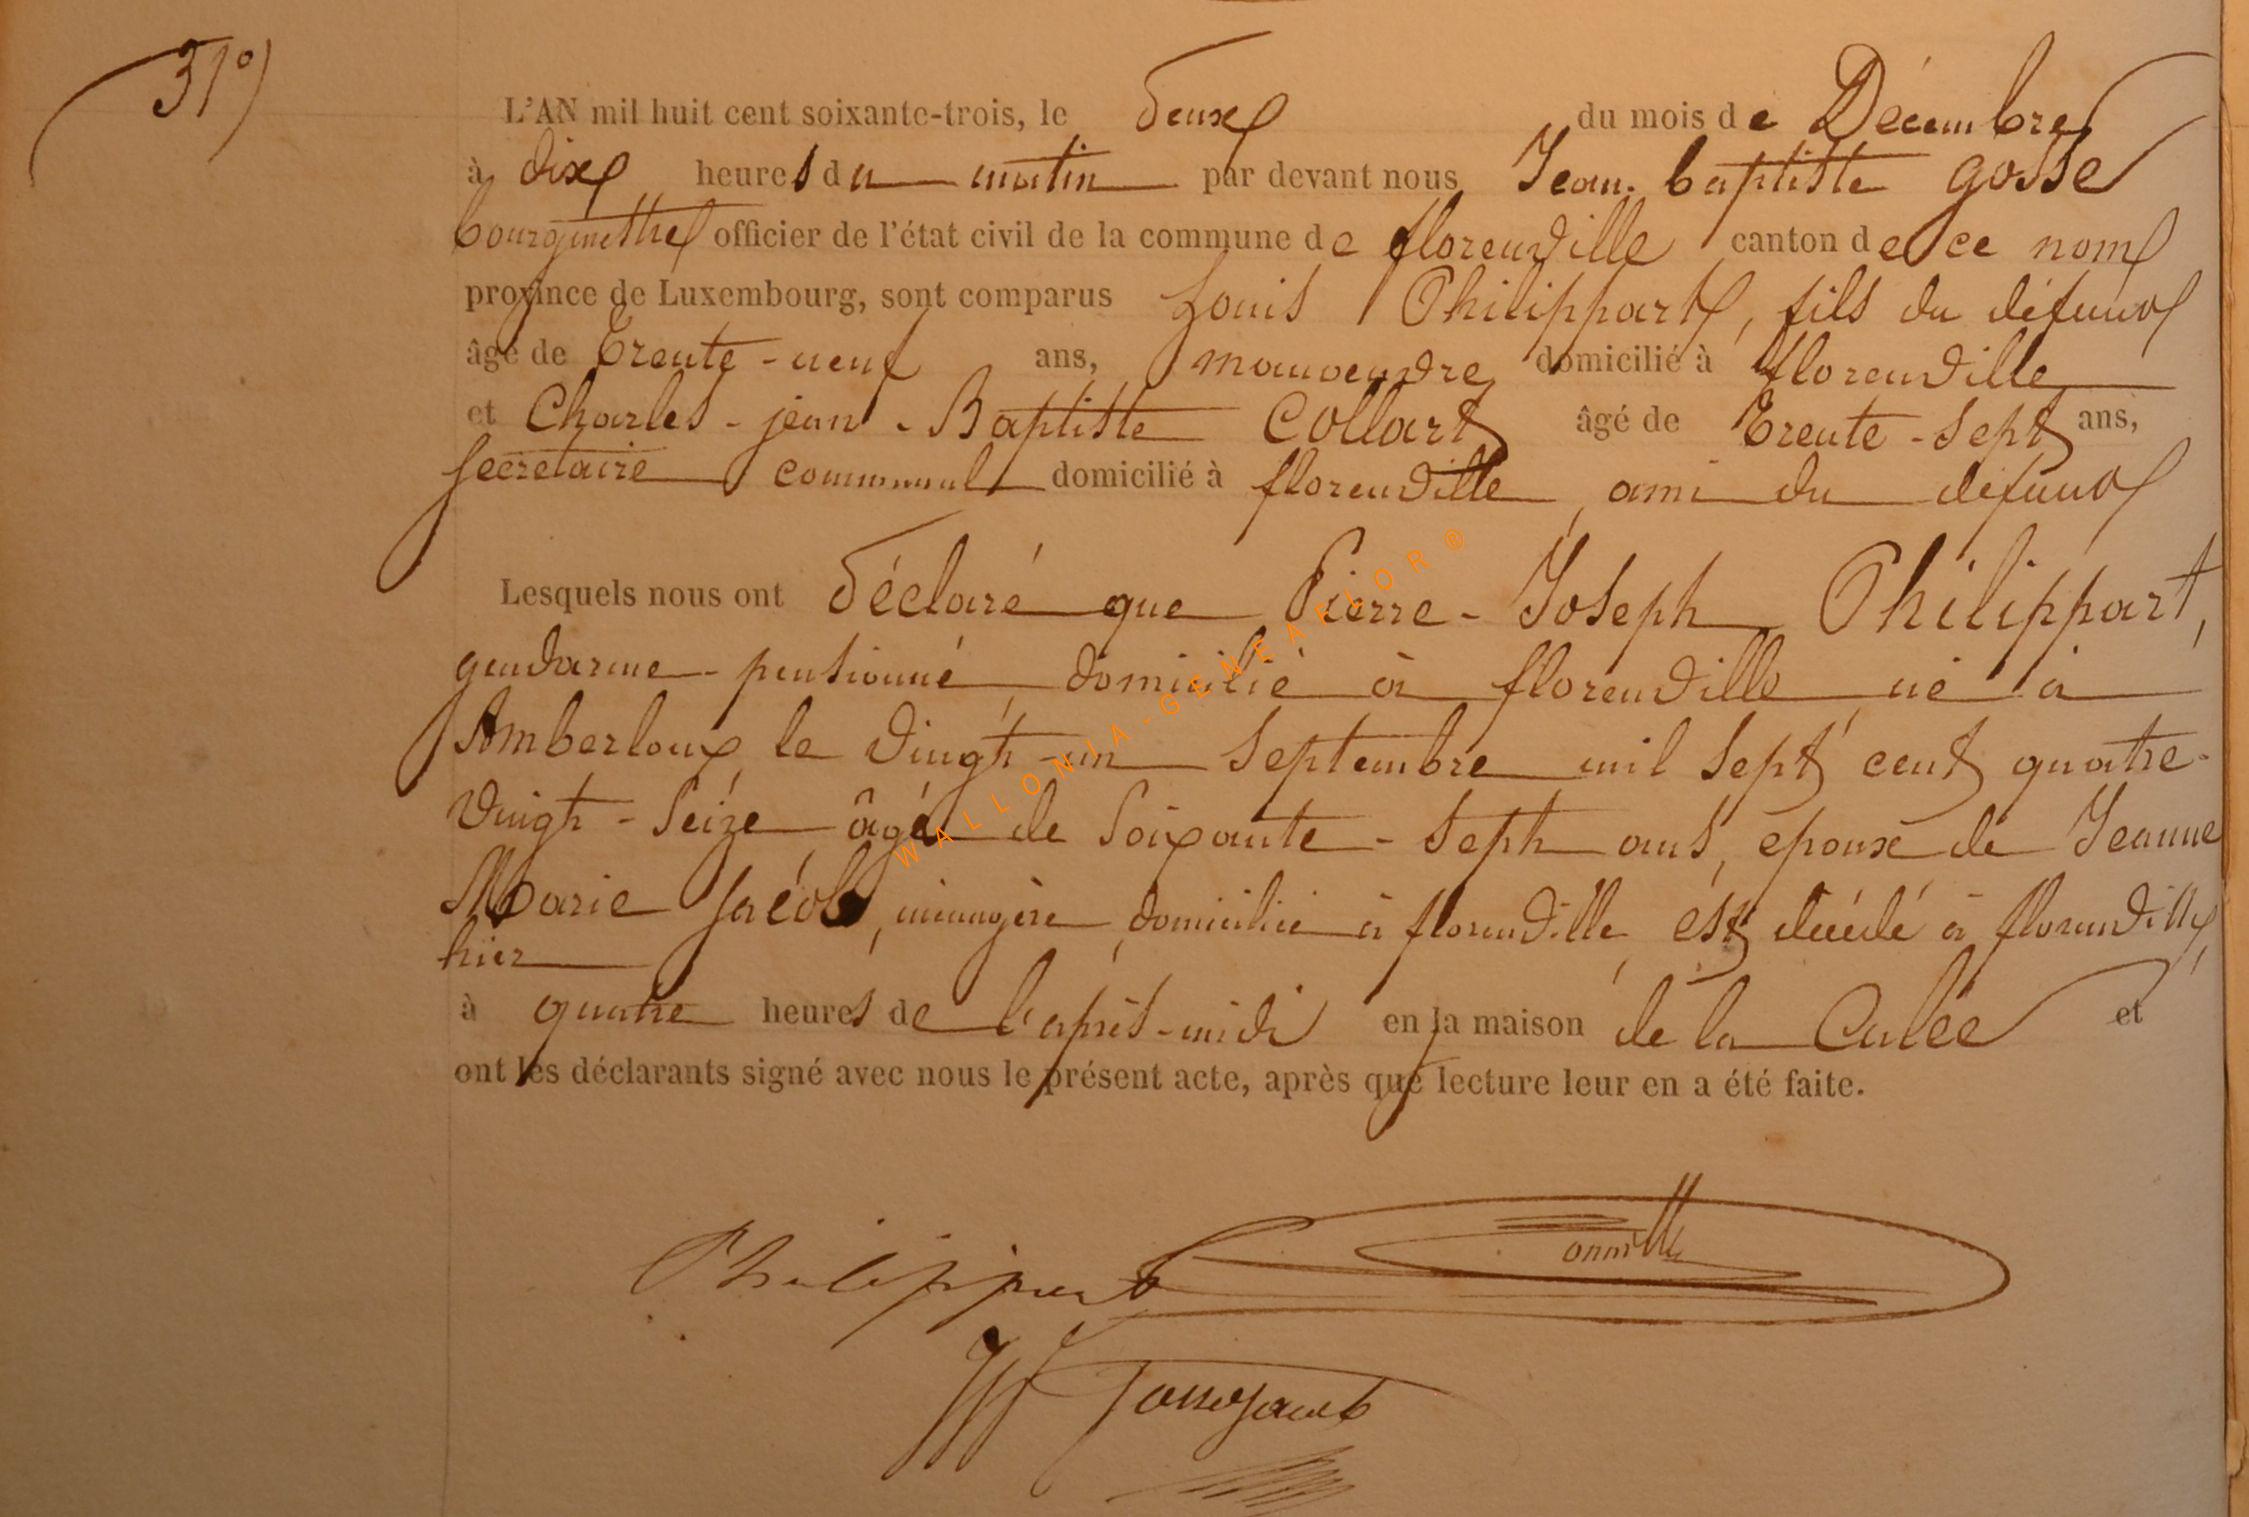 31°)
L'AN mil huit cent soixante-trois, le deux du mois de Décembre
à dix heures du matin par devant nous Jean-baptiste gosse
bourgmestre officier de l'état civil de la commune de florenville canton de ce nom
province de Luxembourg, sont comparus Louis Philippart, fils du défunt
âgé de trente-neuf ans, domicilié à florenville
et Charles-jean-Baptiste Collart âgé de trente-sept ans,
secrétaire communal domicilié à florenville, ami du défunt
Lesquels nous ont déclaré que Pierre-Joseph Philippart,
gendarme-pensionné, domicilié à florenville né à
Amberloup le vingt-un septembre mil sept cent quatre-
vingt-seize âgé de soixante-sept ans, époux de Jeanne
Marie Jacob, ménagère, domiciliée à florenville, est décédé à florenville,
hier
à quatre heures de l'après-midi en la maison de la Culée et
ont les déclarants signé avec nous le présent acte, après que lecture leur en a été faite.
Philippart
WALLONIA-GENEALOR®